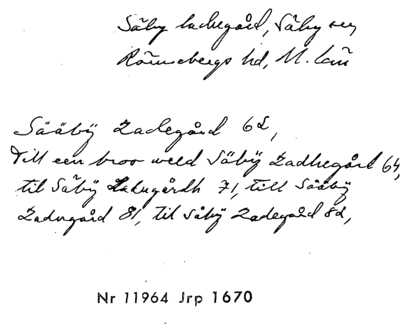 Säby ladugård, Säby sn
Rönnebergs hd, M. län
Sääbÿ Ladegård 62,
Till een broo weed Säbÿ Ladhegård 64,
til Säbÿ Ladugårdh 71, till Sääbÿ
Ladugård 81, til såbÿ Ladegård 82,
Nr 11964 Jrp 1670